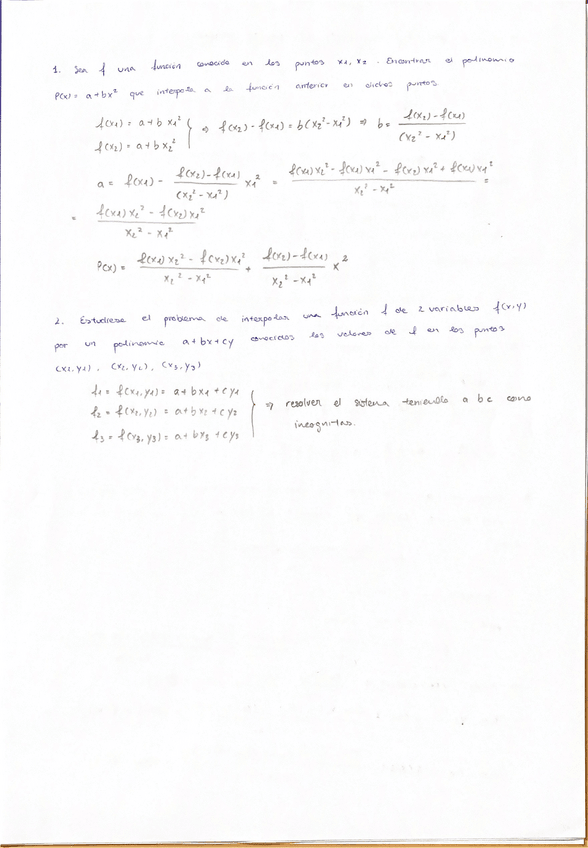 1. Sea f una función conocida en los puntos x1, x2. Encontrar el polinomio
P(x) = a + bx² que interpola a la función anterior en dichos puntos.
f(x1) = a + b x1²
f(x2) = a + b x2² } ⇒ f(x2) - f(x1) = b(x2² - x1²) ⇒ b = (f(x2) - f(x1)) / (x2² - x1²)
a = f(x1) - (f(x2) - f(x1)) / (x2² - x1²) x1² = (f(x1) x2² - f(x1) x1² - f(x2) x1² + f(x1) x1²) / (x2² - x1²) =
= (f(x1) x2² - f(x2) x1²) / (x2² - x1²)
P(x) = (f(x1) x2² - f(x2) x1²) / (x2² - x1²) + (f(x2) - f(x1)) / (x2² - x1²) x²
2. Estudiese el problema de interpolar una función f de 2 variables f(x,y)
por un polinomio a + bx + cy conocidos los valores de f en los puntos
(x1, y1), (x2, y2), (x3, y3)
f1 = f(x1, y1) = a + bx1 + cy1
f2 = f(x2, y2) = a + bx2 + cy2 } ⇒ resolver el sistema teniendo a b c como
f3 = f(x3, y3) = a + bx3 + cy3 incognitas.